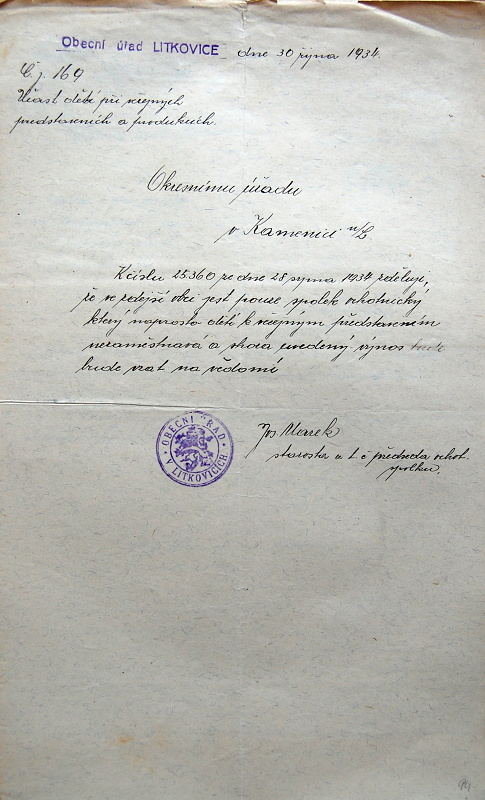 Obecní úřad LITKOVICE dne 30 října 1934.
Č.j. 169
Účast dětí při veřejných
představeních a produkcích.
Okresnímu úřadu
v Kamenici n/L
K číslu 25360 ze dne 28 srpna 1934 zděluji,
že ve zdejší obci jest pouze spolek ochotnický
který naprosto dětí k veřejným představením
nezaměstnává a shora uvedený výnos
bude vzat na vědomí
OBECNÍ ÚŘAD
V LITKOVICÍCH
Jos. Marek
starosta a t. č předseda ochot.
spolku.